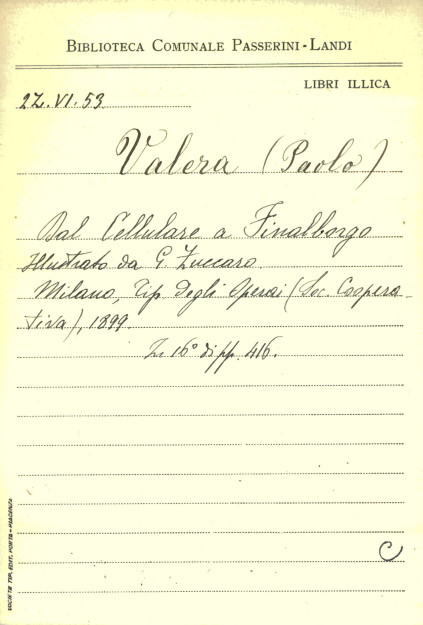 BIBLIOTECA COMUNALE PASSERINI-LANDI
LIBRI ILLICA
2Z.VI.53
Valera (Paolo)
Dal Cellulare a Finalborgo
Illustrato da G Zuccaro.
Milano, Tip. degli Operai (Soc. Coopera-
tiva), 1899.
In 16° di pp. 416.
C
SOCIETÀ TIP. EDIT. PORTA - PIACENZA